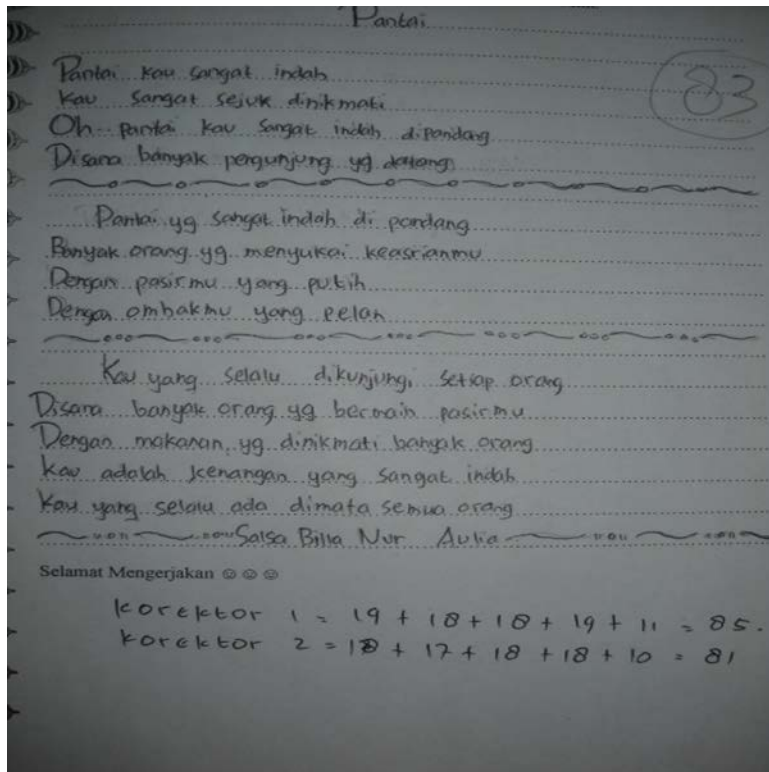 Pantai
83
Pantai kau sangat indah
Kau sangat sejuk dinikmati
Oh pantai kau sangat indah dipandang
Disana banyak pergunjung yg datang
Pantai yg sangat indah di pandang
Banyak orang yg menyukai keasrianmu
Dengan pasirmu yang putih
Dengan ombakmu yang pelan
Kau yang selalu dikunjungi setiap orang
Disana banyak orang yg bermain pasirmu
Dengan makanan yg dinikmati banyak orang
Kau adalah kenangan yang sangat indah
Kau yang selalu ada dimata semua orang
Salsa Billa Nur Aulia
Selamat Mengerjakan ☺ ☺ ☺
korektor 1 = 19 + 18 + 18 + 19 + 11 = 85.
korektor 2 = 18 + 17 + 18 + 18 + 10 = 81